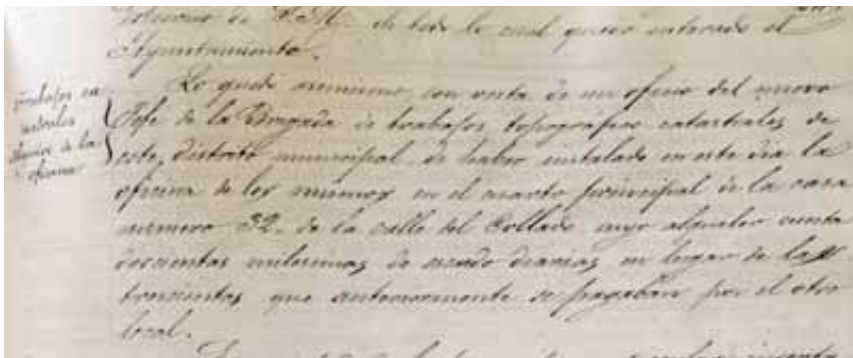 Gobierno de S. M. de todo lo cual quedó enterado el
Ayuntamiento.
trabajos ca
tastrales
de la
oficina
Lo quedó asimismo con vista de un oficio del nuevo
Jefe de la Brigada de trabajos topografico catastrales de
este, distrito municipal de haber instalado en este dia la
oficina de los mismos en el cuarto principal de la casa
numero 32. de la calle del Collado cuyo alquiler cuesta
doscientas milesimas de escudo diarias en lugar de las
trescientas que anteriormente se pagaban por el otro
local.